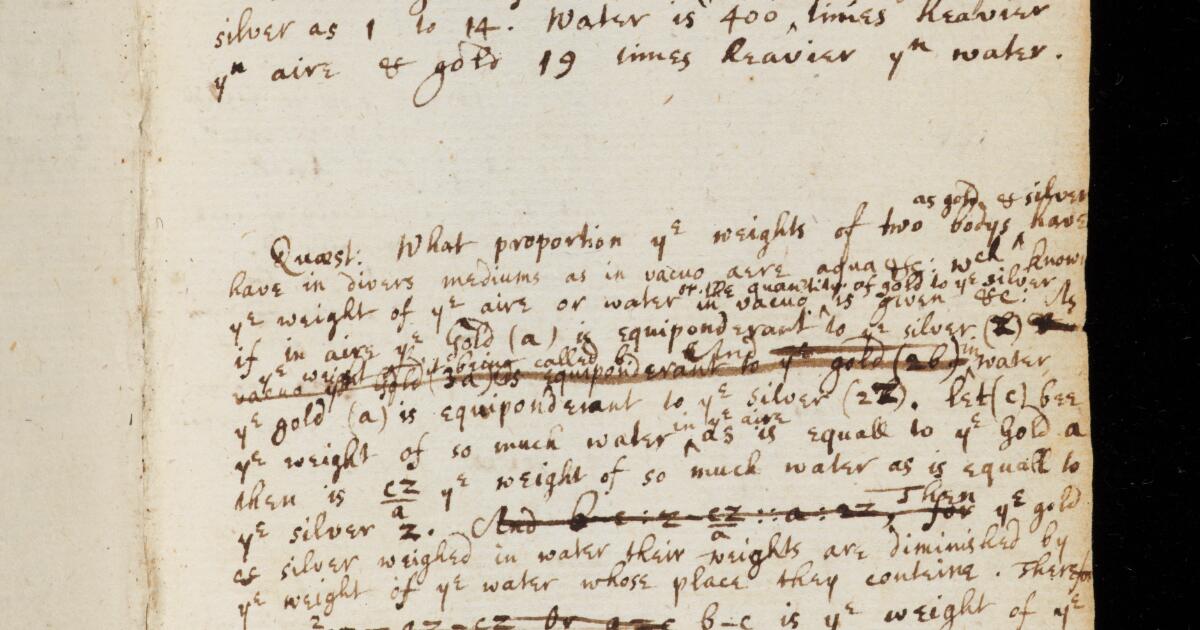 silver as 1 to 14. Water is 400 times heavier
yn aire & gold 19 times heavier yn water.
as gold & silver
Quæst. What proportion ye weights of two bodys have
have in divers mediums as in vacuo aere aqua &c: wch known
or the quantity of gold to ye silver
ye weight of ye aire or water in vacuo is given &c: As
if in aire ye Gold (a) is equiponderant to ye silver (z)
ye weight being called b And in
vacuo ye gold (3a) is equiponderant to ye gold (2b) water
ye gold (a) is equiponderant to ye silver (2z). Let (c) bee
in ye aire
ye weight of so much water as is equall to ye Gold a
then is cz/a ye weight of so much water as is equall to
ye silver z. And b-c : z - cz/a :: a : 2z, Then for ye gold
as silver weighed in water their weights are diminished by
ye weight of ye water whose place they conteine. Therefor
b-c is ye weight of ye